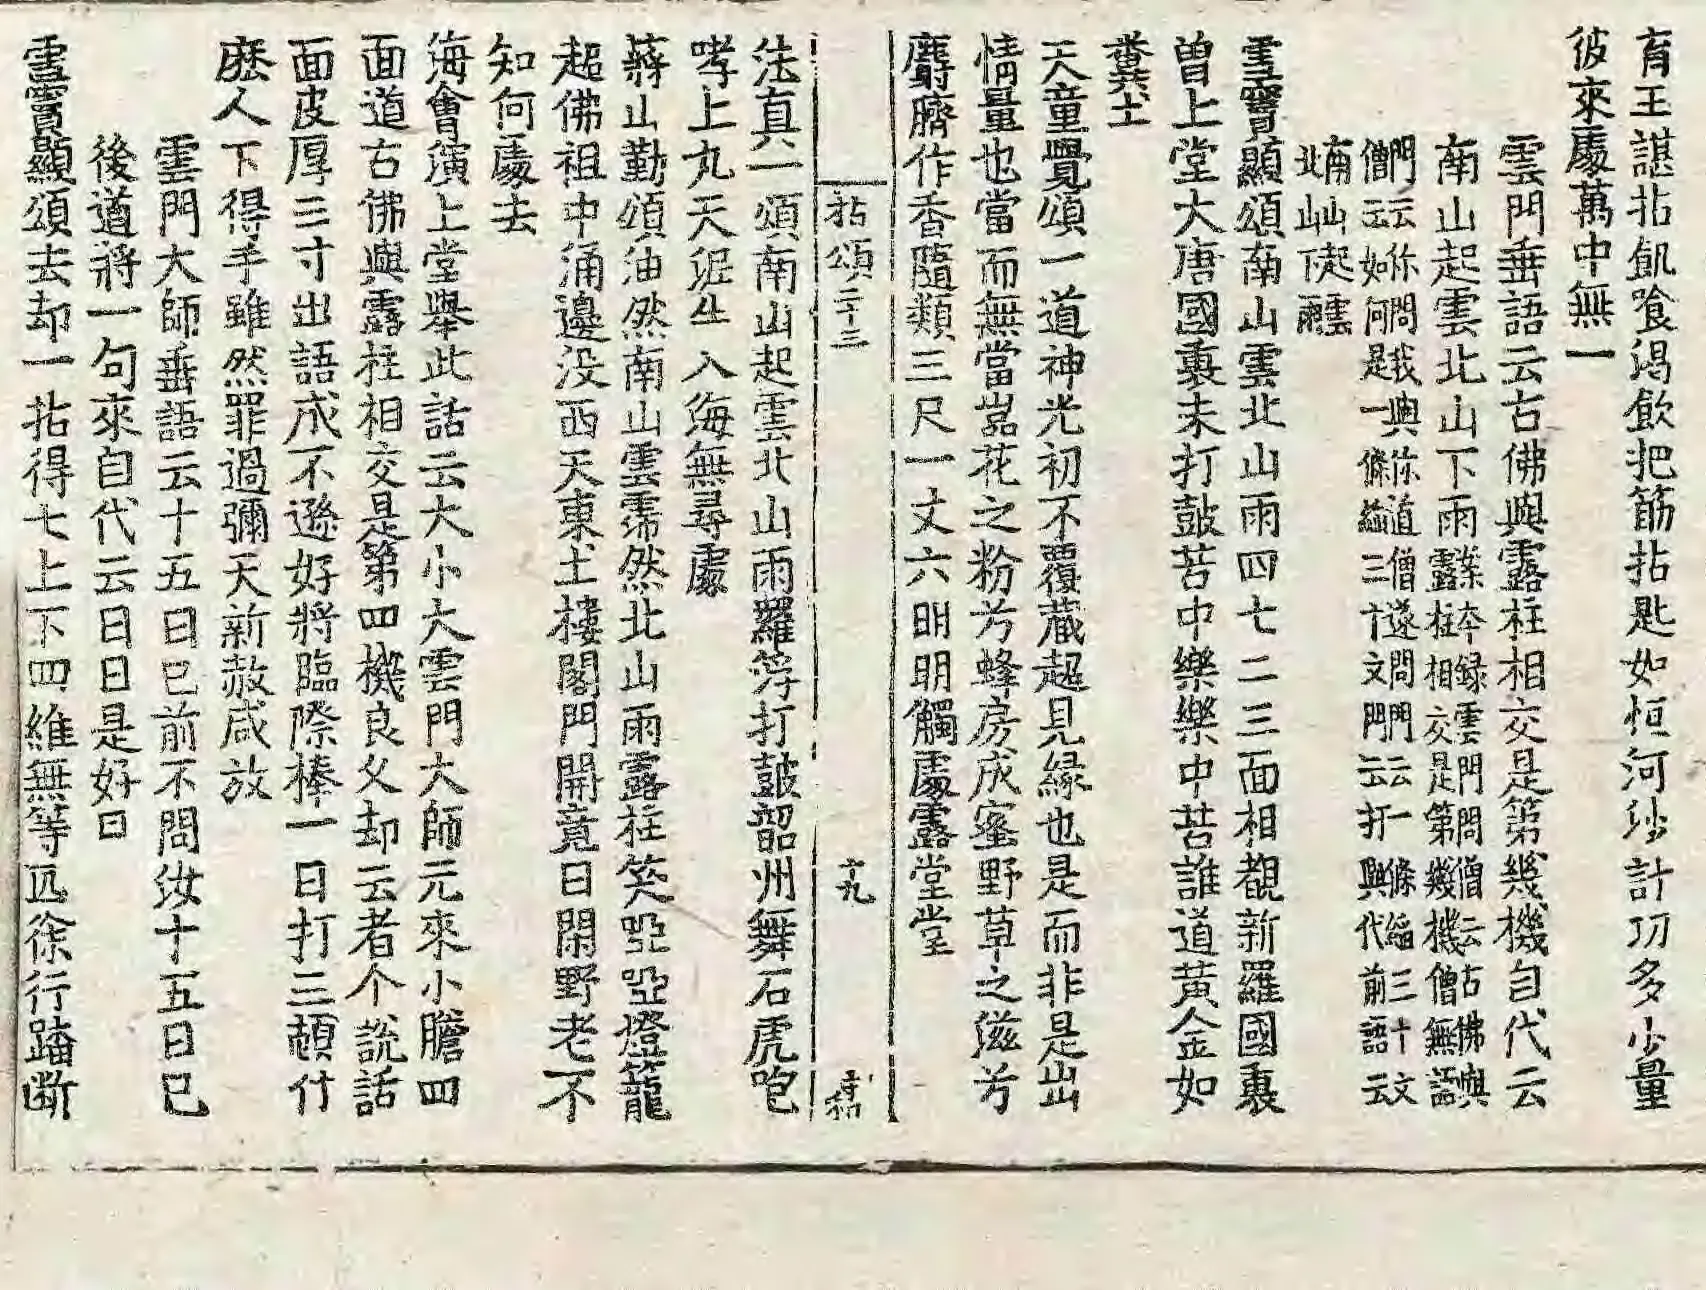 育王諶拈飢飡渴飲把筯拈匙如恒河沙計功多少量
彼來處萬中無一
雲門垂語云古佛與露柱相交是第幾機自代云
南山起雲北山下雨
葉本録雲門問僧云古佛與
露柱相交是第幾機僧無語
門云你問我與你道僧遂問門云一條絛三十文
僧云如何是一條絛三十文門云打與代前語云
南山起雲
北山下雨
雪竇顯頌南山雲北山雨四七二三面相覩新羅國裏
曽上堂大唐國裏未打鼓苦中樂樂中苦誰道黄金如
糞土
天童覺頌一道神光初不覆藏超見緣也是而非是出
情量也當而無當嵓花之粉兮蜂房成蜜野草之滋兮
麝臍作香隨類三尺一丈六明明觸處露堂堂
拈頌二十三
十九
法真一頌南山起雲北山雨羅浮打鼓韶州舞石虎咆
哮上九天泥牛入海無尋處
蔣山勤頌油然南山雲霈然北山雨露柱笑啞啞燈籠
超佛祖中涌邊没西天東土樓閣門開竟日閑野老不
知何處去
海會演上堂舉此話云大小大雲門大師元來小膽四
面道古佛與露柱相交是第四機良久却云者个説話
面皮厚三寸出語成不遜好將臨際棒一日打三頓什
麽人下得手雖然罪過彌天新赦咸放
雲門大師垂語云十五日已前不問汝十五日已
後道將一句來自代云日日是好日
雪竇顯頌去却一拈得七上下四維無等匹徐行踏断